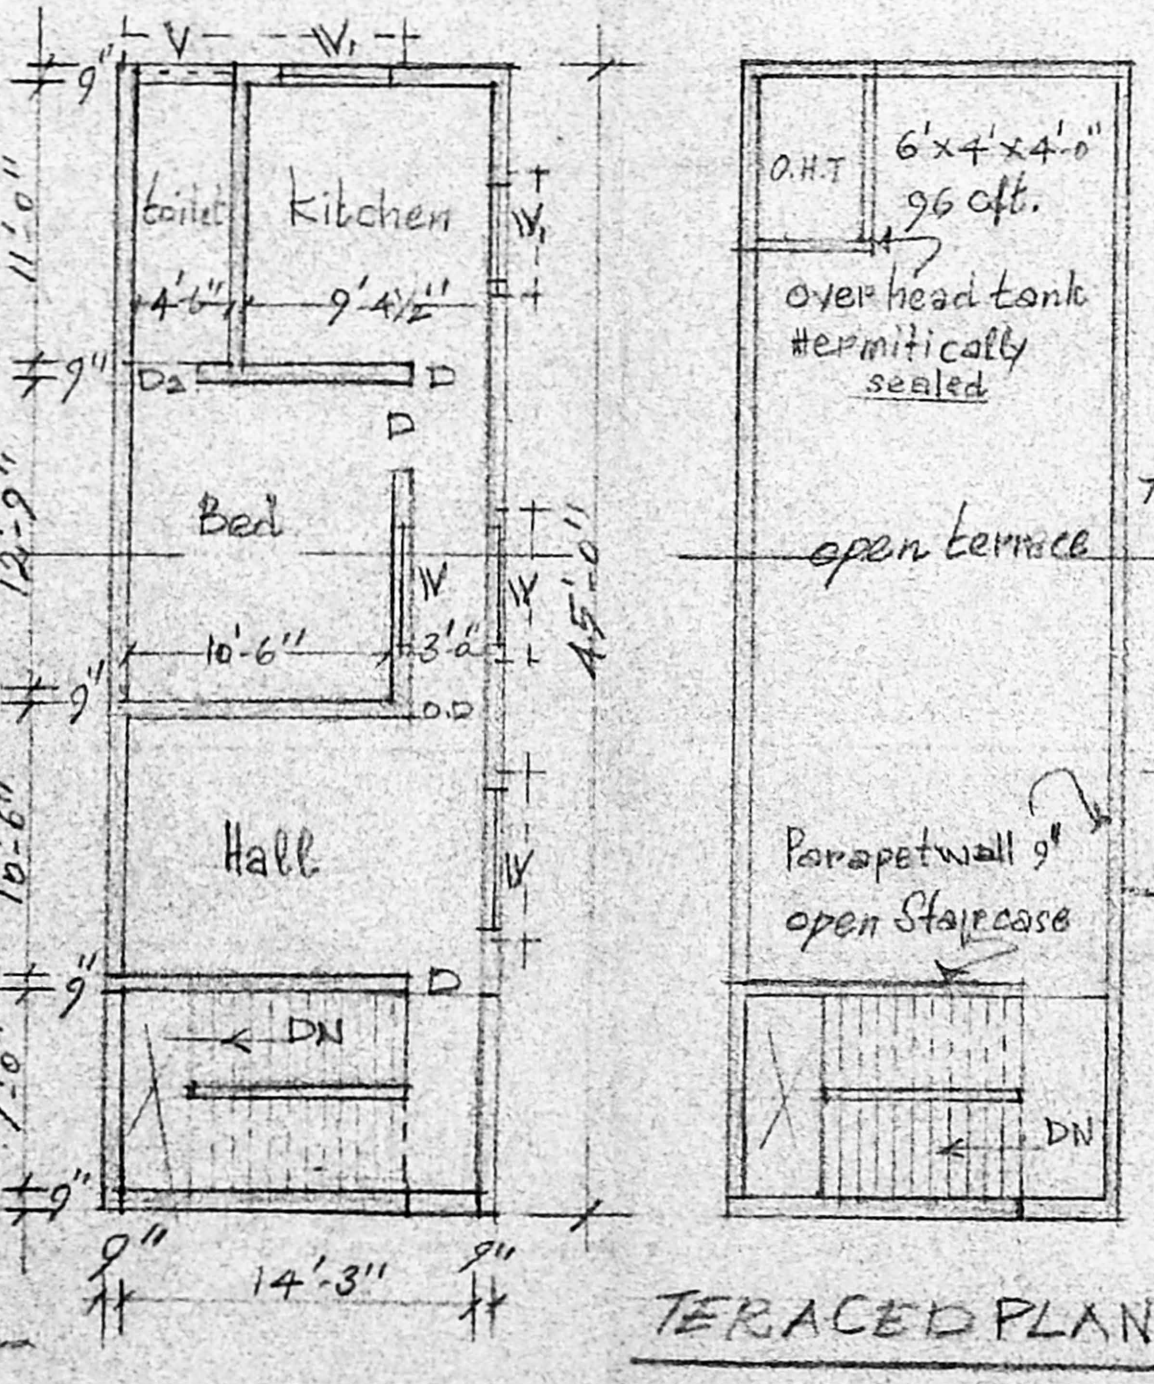 V
W₁
9"
11'-0"
toilet
kitchen
W₁
4'-6"
9'-4½"
9"
D2
D
D
12'-9"
Bed
W
W
45'-0"
10'-6"
3'-0"
9"
O.D
10'-6"
Hall
W
9"
D
DN
7'-0"
9"
9"
14'-3"
9"
O.H.T
6'x4'x4'-0"
96 cft.
over head tank
Hermitically
sealed
open terrace
Parapetwall 9"
open Staircase
DN
TERACED PLAN